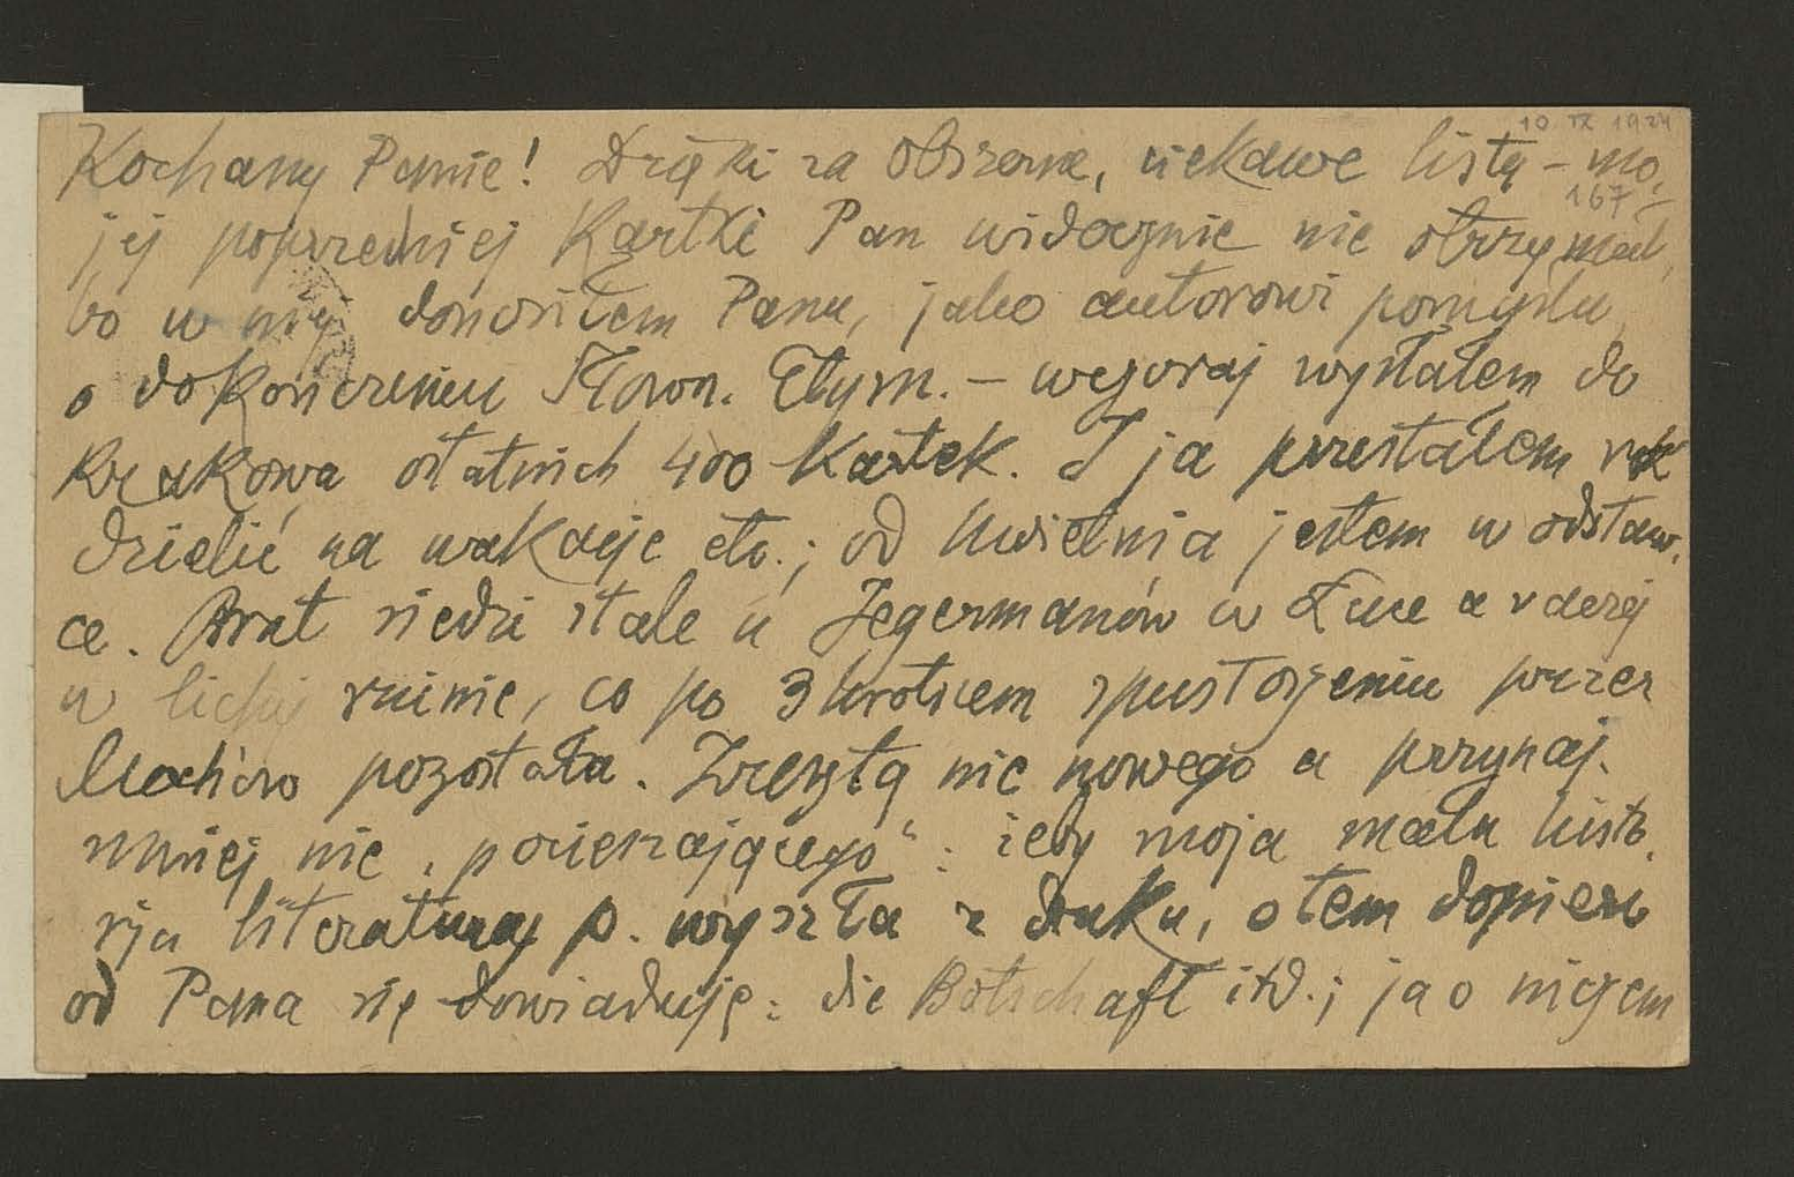 10 IX 1924
Kochany Panie! Dzięki za obszerne, ciekawe listy – mo,
167
jej poprzedniej Kartki Pan widocznie nie otrzymał,
bo w niej donosiłem Panu, jako autorowi pomysłu,
o dokończeniu Słown. Etym. – wczoraj wysłałem do
Krakowa ostatnich 400 kartek. I ja przestałem rok
dzielić na wakacje etc.; od kwietnia jestem w odstaw,
ce. Brat siedzi stale u Jegermanów w Łuce a raczej
w lichej ruinie, co po 3krotnem spustoszeniu przez
Mochów pozostała. Zresztą nic nowego a przynaj.
mniej nic „pocieszającego“: żeby moja mała histo,
rja literatury p. wyszła z druku, o tem dopiero
od Pana się dowiaduję: die Botschaft itd.; ja o niczem